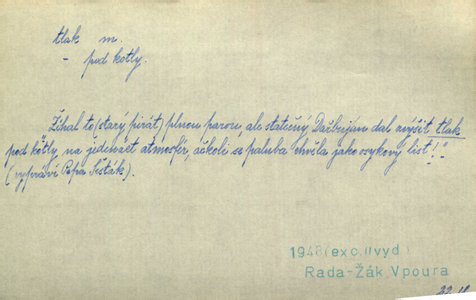 tlak m.
– pod kotly.
Žíhal to (starý pirát) plnou parou, ale statečný Dařbuján dal zvýšit tlak
pod kotly, na jedenáct atmosfér, ačkoli se paluba chvěla jako osykový list!"
(vypráví Pepa Šešták).
1948 (exc. II vyd)
Rada-Žák, Vpoura